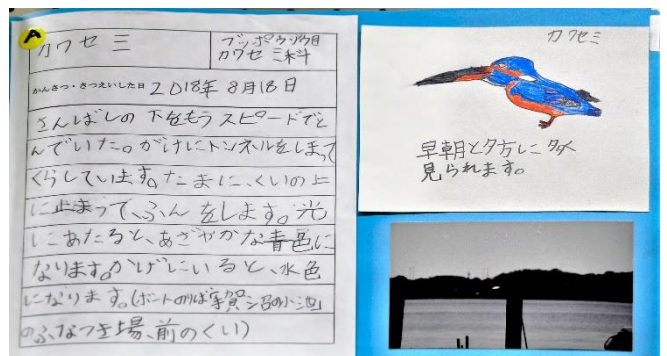 A
カワセミ
ブッポウソウ目
カワセミ科
かんさつ・さつえいした日 2018年8月18日
さんばしの下をもうスピードでと
んでいた。がけにトンネルをほって
くらしています。たまに、くいの上
に止まって、ふんをします。光
にあたると、あざやかな青色に
なります。かげにいると、水色
になります。(ボートのりば宇賀沼の小池
のふなつき場、前のくい)
カワセミ
早朝と夕方に多く
見られます。